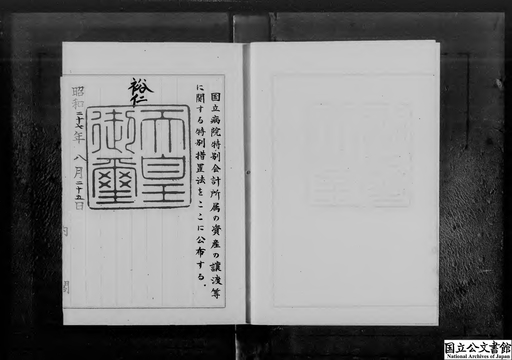 国立病院特別会計所属の資産の譲渡等
に関する特別措置法をここに公布する。
裕仁
天皇
御璽
昭和二十七年八月二十五日
内閣
国立公文書館
National Archives of Japan